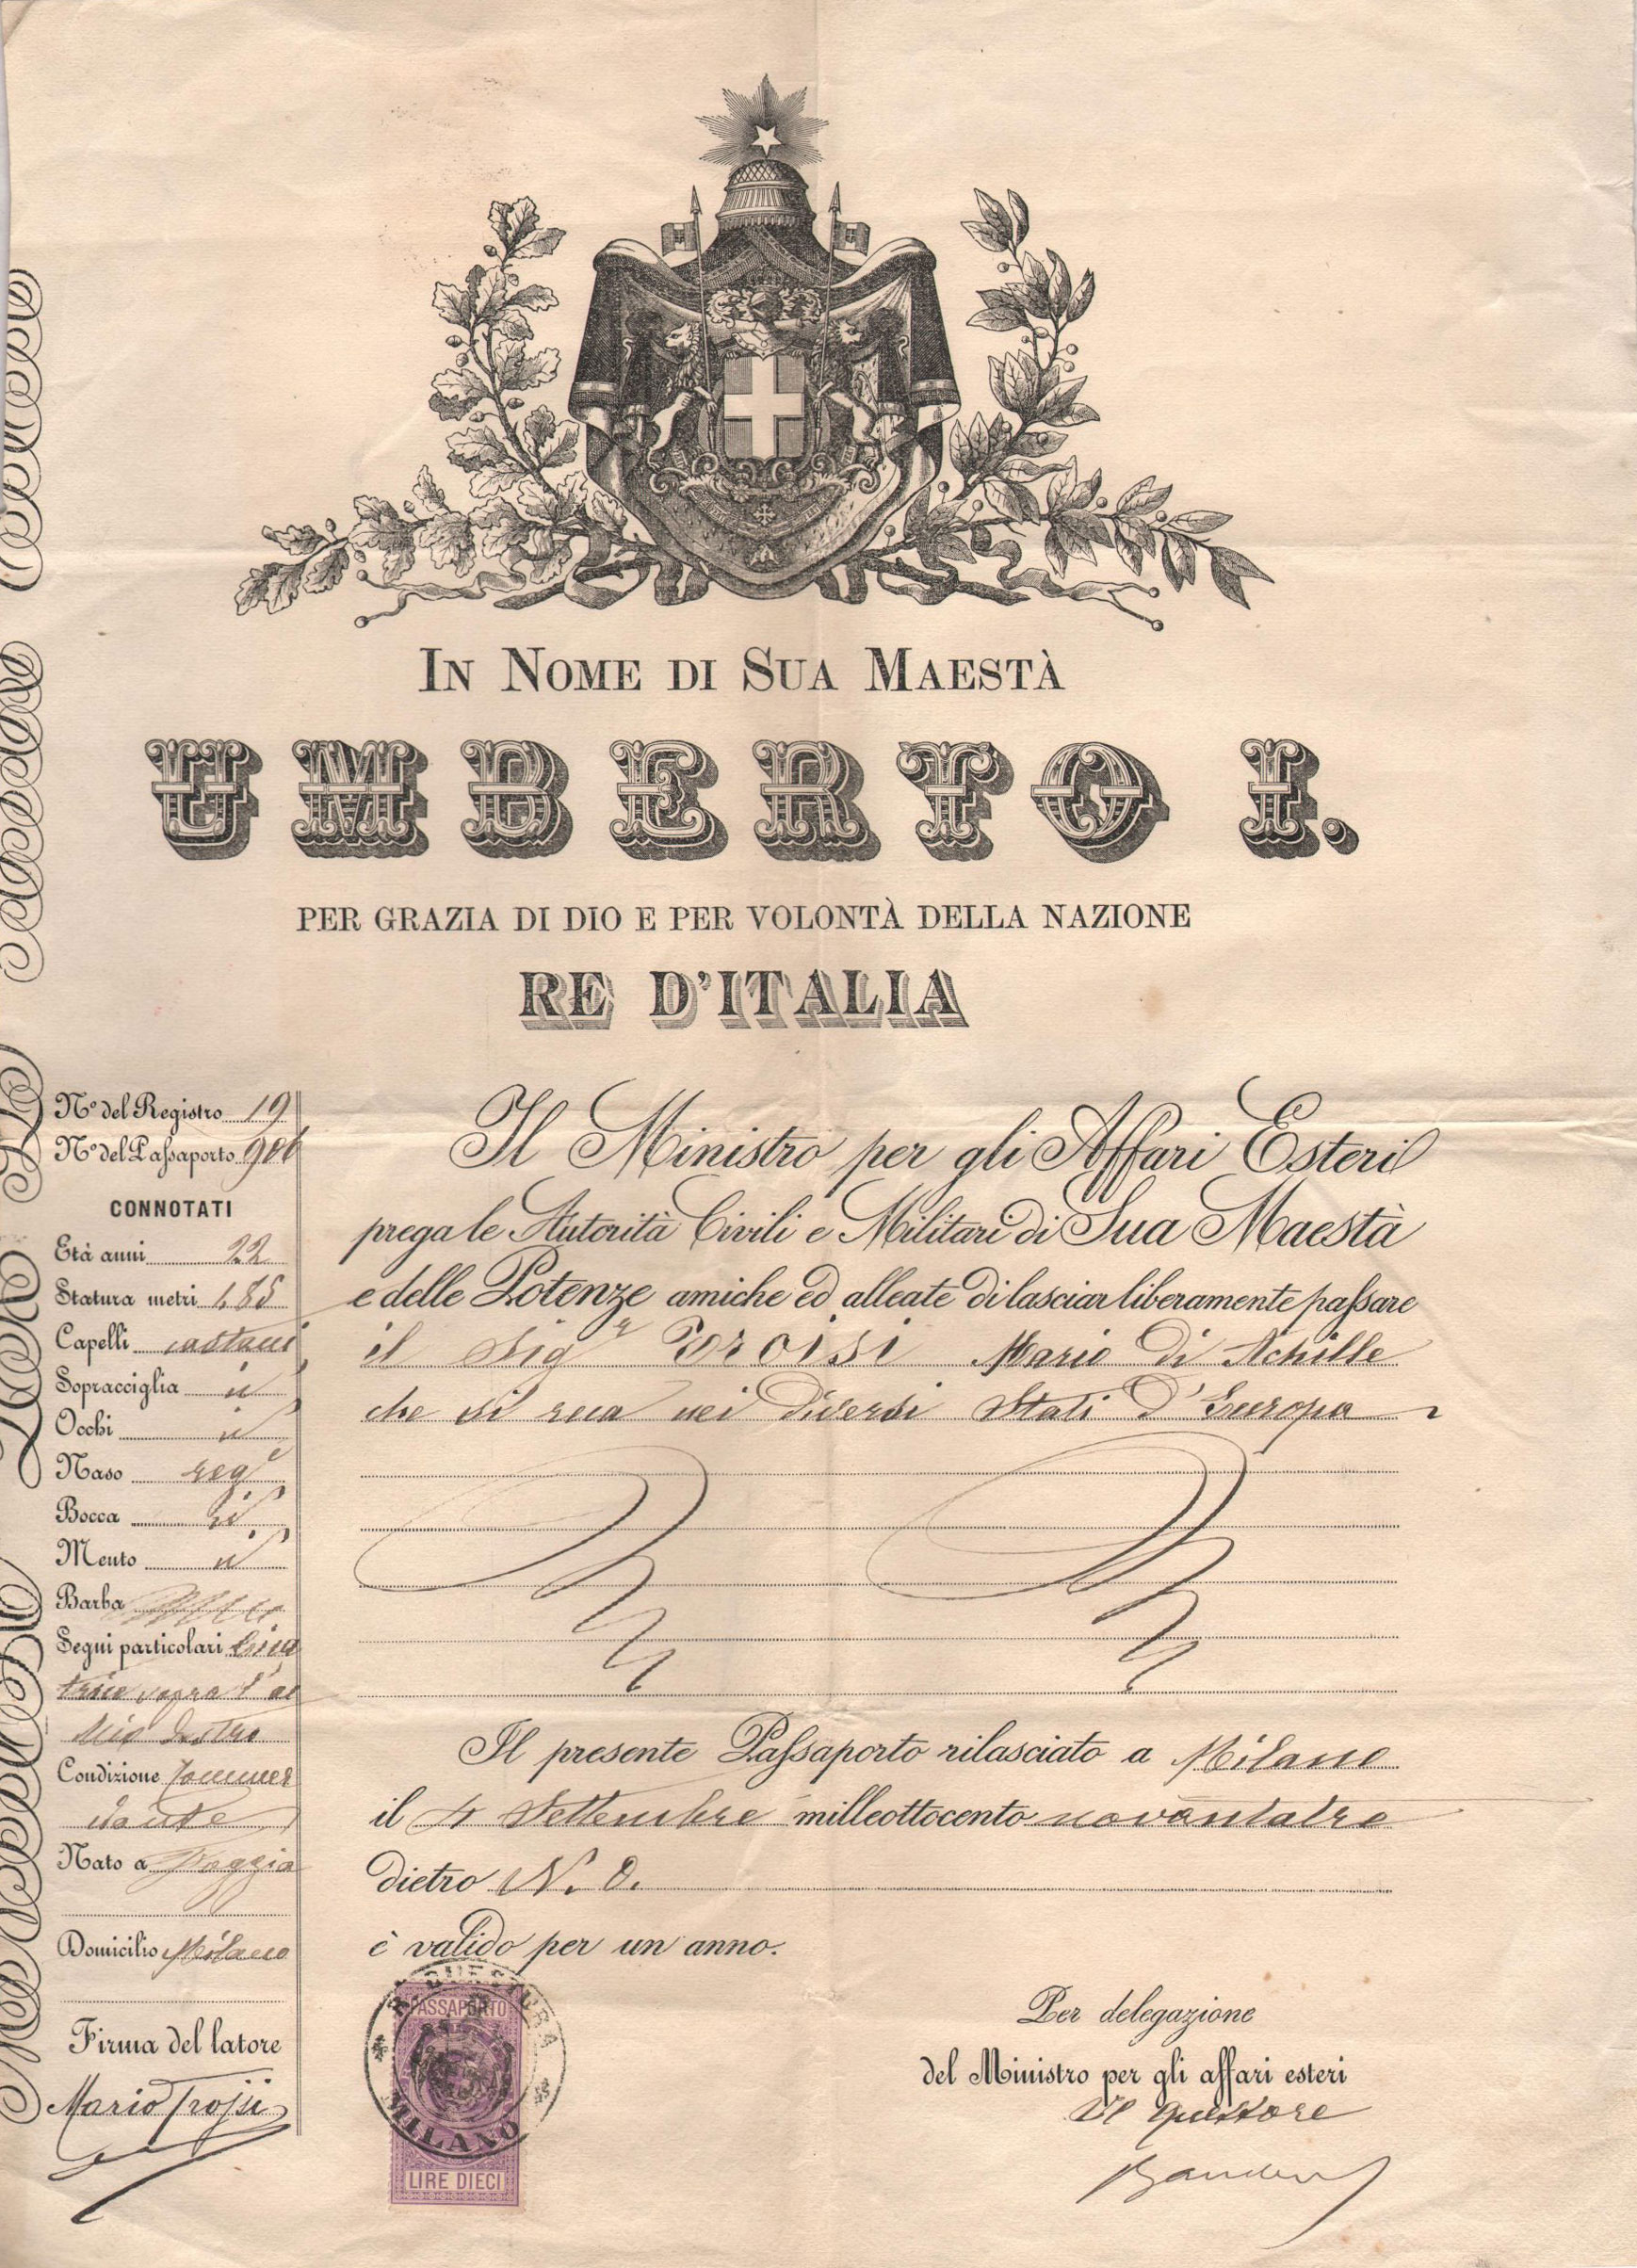 IN NOME DI SUA MAESTÀ
UMBERTO I.
PER GRAZIA DI DIO E PER VOLONTÀ DELLA NAZIONE
RE D'ITALIA
Nº del Registro 19
Nº del Passaporto 906
CONNOTATI
Età anni 22
Statura metri 1,85
Capelli castani
Sopracciglia id
Occhi id
Naso reg.e
Bocca id.
Mento id
Barba
Segni particolari Cica
trice sopra l'oc
chio destro
Condizione Commer
ciante
Nato a Foggia
Domicilio Milano
Firma del latore
Mario Troisi
Il Ministro per gli Affari Esteri
prega le Autorità Civili e Militari di Sua Maestà
e delle Potenze amiche ed alleate di lasciar liberamente passare
il Sigr Troisi Mario di Achille
che si reca nei diversi Stati d'Europa
Il presente Passaporto rilasciato a Milano
il 4 Settembre milleottocento novantatre
dietro N. O.
è valido per un anno.
R. QUESTURA
MILANO
PASSAPORTO
LIRE DIECI
Per delegazione
del Ministro per gli affari esteri
Il Questore